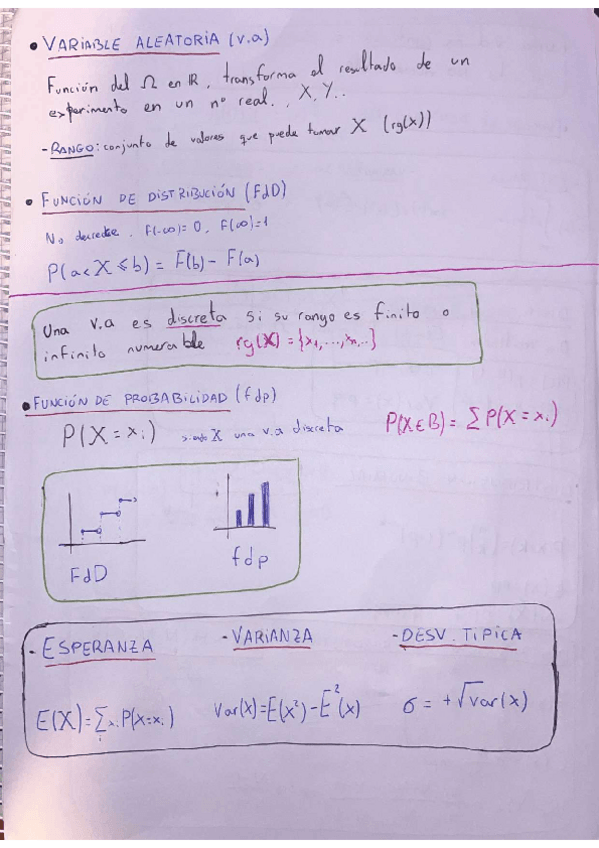 • VARIABLE ALEATORIA (v.a)
Función del Ω en ℝ, transforma el resultado de un
experimento en un nº real., X, Y..
- RANGO: conjunto de valores que puede tomar X (rg(x))
• FUNCIÓN DE DISTRIBUCIÓN (FdD)
No decrece, F(-∞)=0, F(∞)=1
P(a<X⩽b) = F(b) - F(a)
Una v.a es discreta si su rango es finito o
infinito numerable rg(X) = {x₁,...,xₙ,..}
• FUNCIÓN DE PROBABILIDAD (fdp)
P(X=xᵢ) siendo X una v.a discreta P(X∈B) = ∑ P(X=xᵢ)
FdD fdp
- ESPERANZA - VARIANZA - DESV. TIPICA
E(X)=∑ᵢ xᵢ P(X=xᵢ) Var(X)=E(x²)-E²(x) σ = +√var(x)